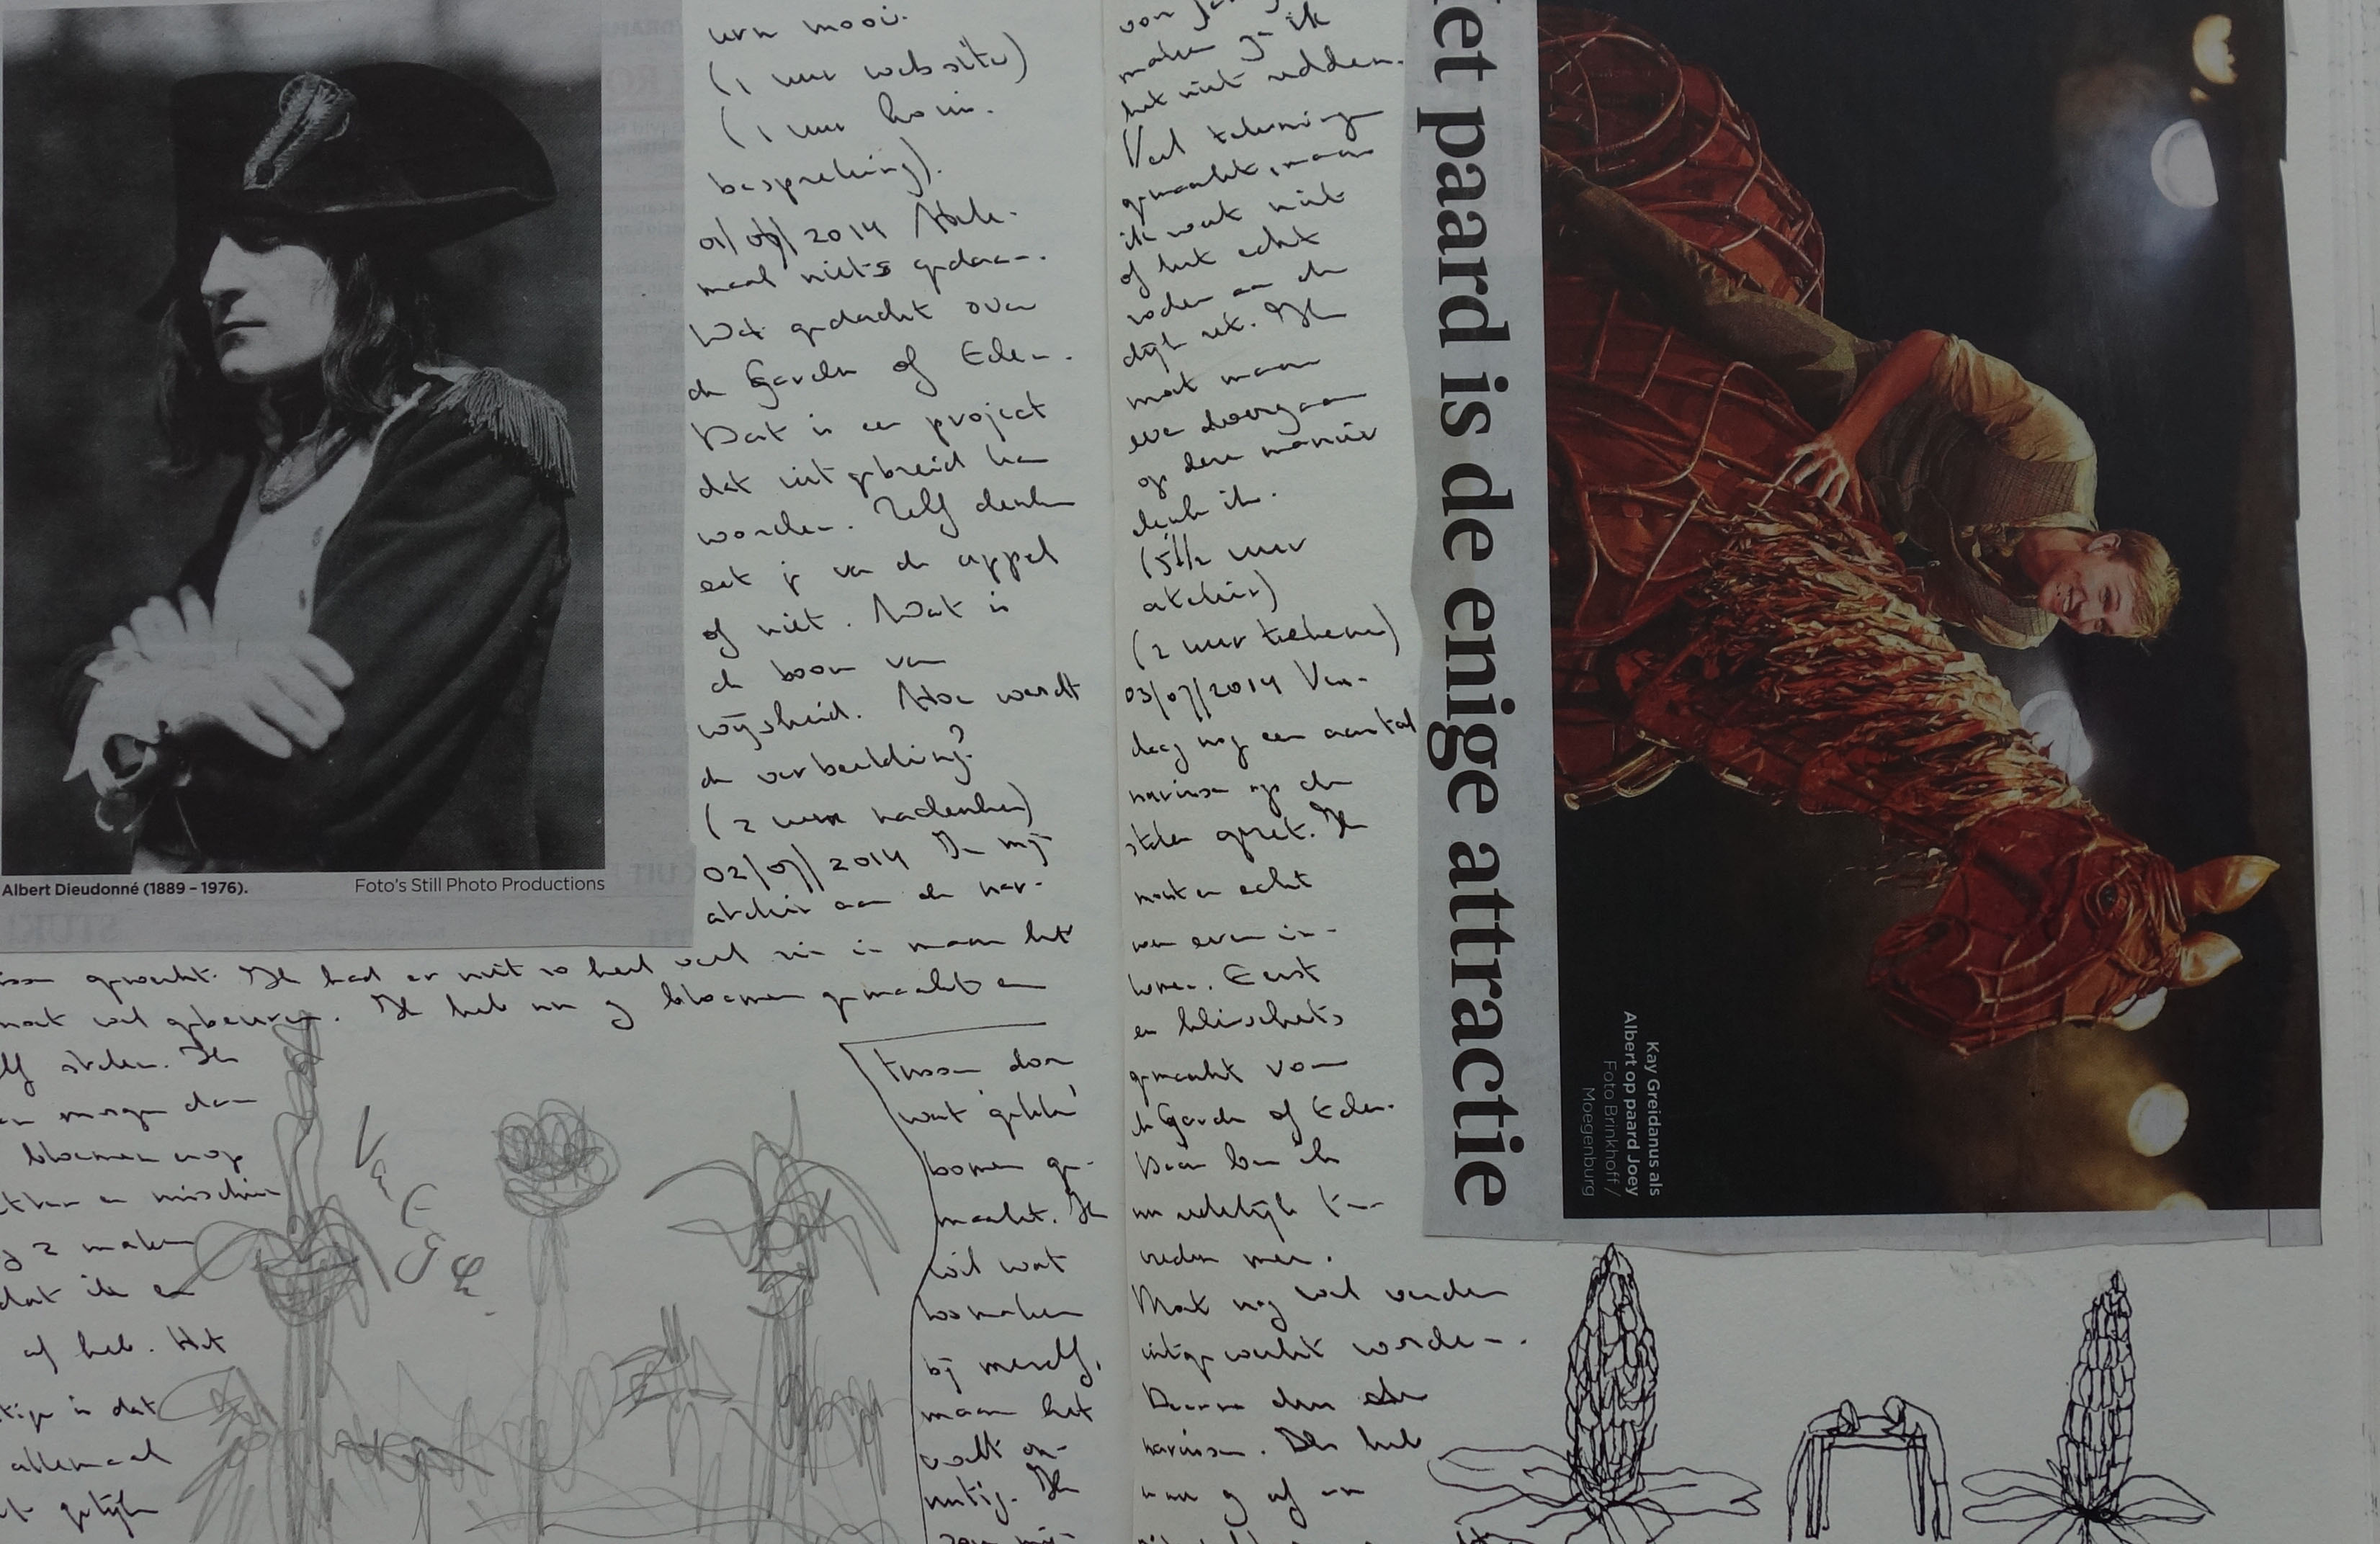 Albert Dieudonné (1889 – 1976).
Foto's Still Photo Productions
urn mooi.
(1 uur website)
(1 uur
bespreking).
01/07/2014 Hele-
maal niets gedaan.
Wat gedacht over
de Garden of Eden.
Dat is een project
dat uitgebreid kan
worden. Zelf denken
eet je van de appel
of niet. Wat is
de boom van
wijsheid. Hoe wordt
de verbeelding?
(2 uur nadenken)
02/07/2014 In mijn
atelier aan de nar-
cissen gewerkt. Ik had er niet zo heel veel zin in maar het
moet wel gebeuren. Ik heb nu 9 bloemen gemaakt en
stelen. Ik
morgen dan
bloemen erop
en misschien
2 maken
dat ik er
af heb. Het
is dat
allemaal
gelijk
Tussen door
wat 'gekke'
bomen ge-
maakt. Ik
wil wat
losmaken
bij mezelf,
maar het
voelt on-
nuttig. Ik
zou
maken ik
het niet redden.
Veel tekeningen
gemaakt, maar
ik weet niet
of het echt
zoden aan de
dijk zet. Ik
moet maar
even doorgaan
op deze manier
denk ik.
(5 1/2 uur
atelier)
(2 uur tekenen)
03/07/2014 Van-
daag nog een aantal
narcissen op de
stelen gezet. Ik
moet er echt
weer even in-
komen. Eerst
een kleischets
gemaakt voor
de Garden of Eden.
Daar ben ik
nu redelijk te-
vreden mee.
Moet nog wel verder
uitgewerkt worden.
Daarna de
narcissen. Ik heb
nu 9 af en
et paard is de enige attractie
Kay Greidanus als
Albert op paard Joey
Foto Brinkhoff /
Moegenburg